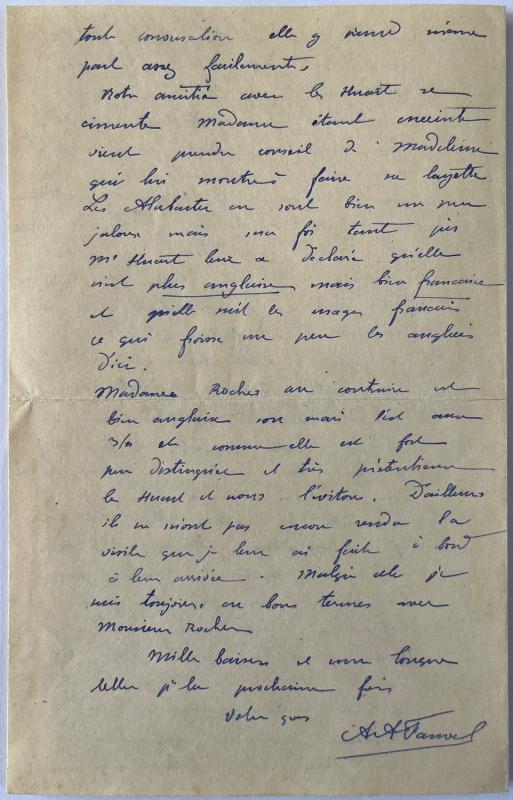 toute conversation elle y prend même
part assez facilement.
Notre amitié avec les Huart se
cimente Madame étant enceinte
vient prendre conseil de Madeleine
qui lui montre à faire sa layette.
Les Alabaster en sont bien un peu
jaloux mais ma foi tant pis
Me Huart leur a déclaré qu'elle
n'est plus anglaise mais bien française
et qu'elle suit les usages français
ce qui froisse un peu les anglais
d'ici.
Madame Roches au contraire est
bien anglaise son mari l'est aux
3/4 et comme elle est fort
peu distinguée et très prétentieuse
les Huart et nous l'évitons. D'ailleurs
ils ne m'ont pas encore rendu la
visite que je leur ai faite à bord
à leur arrivée. Malgré cela je
suis toujours en bons termes avec
Monsieur Roches
Mille baisers et une longue
lettre pr la prochaine fois
Votre
A A Fauvel